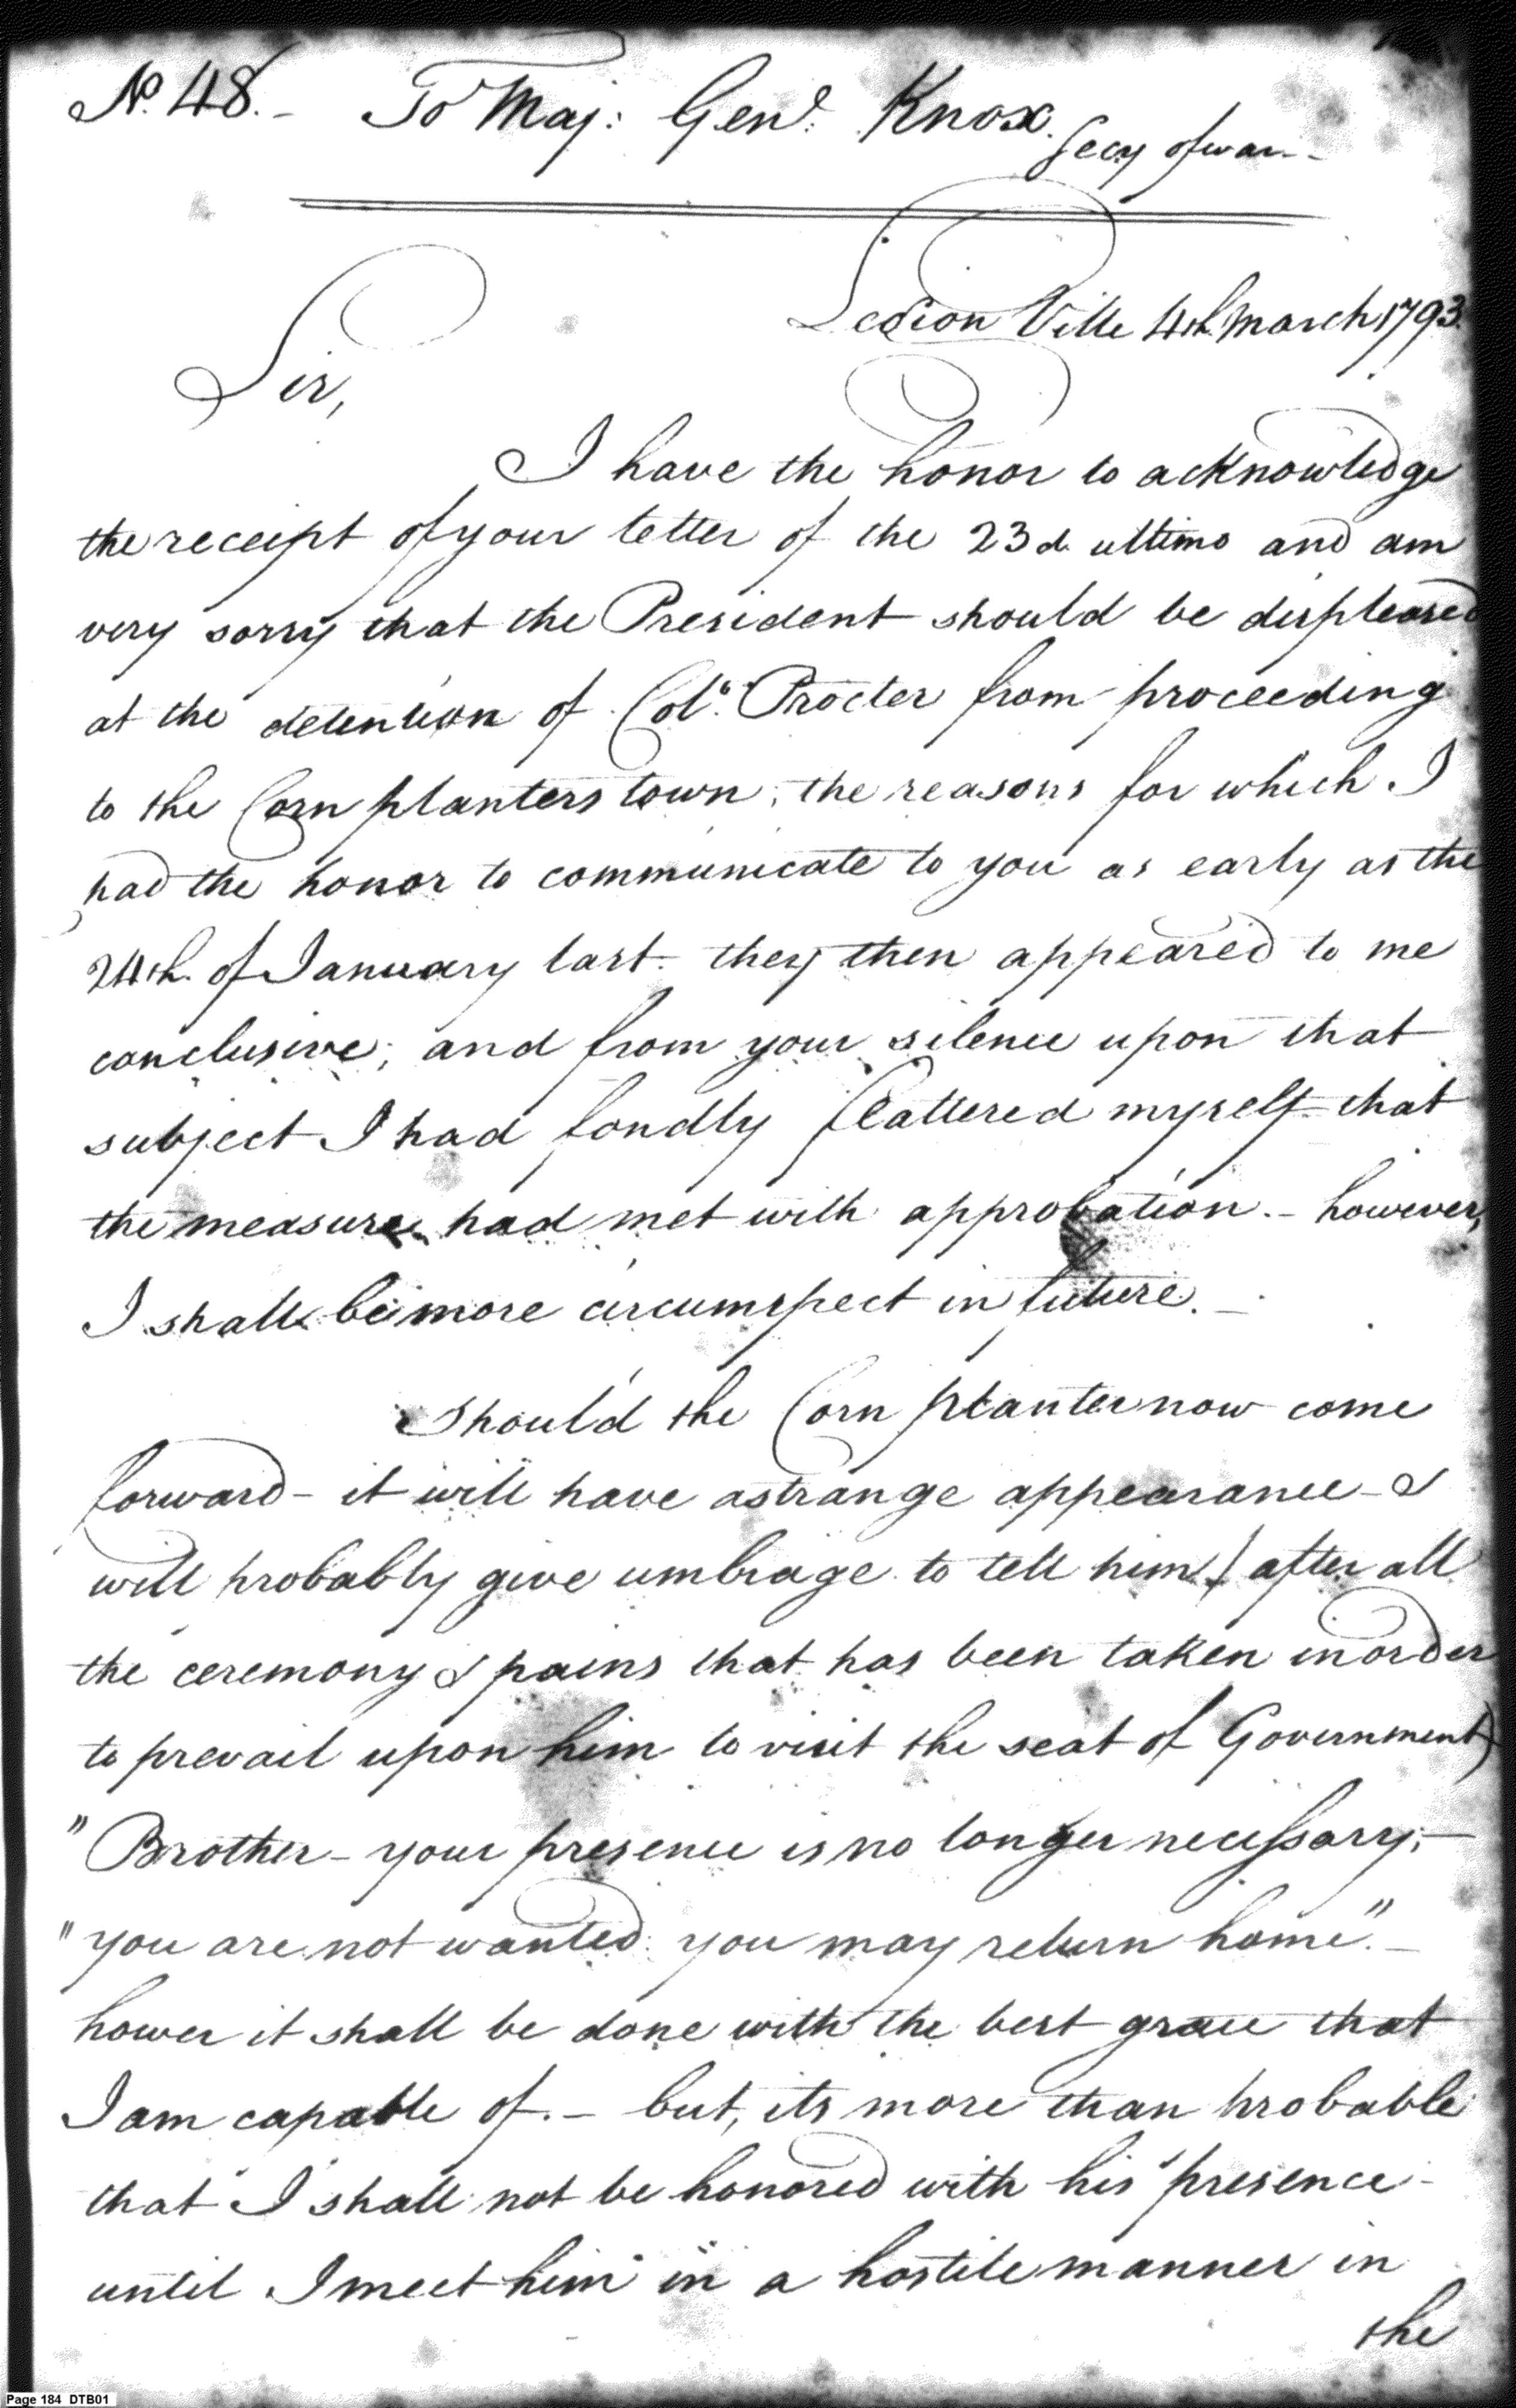 No. 48.- To Maj: Genl: Knox. Secy of war.-
Legion Ville 4th March 1793.
Sir,
I have the honor to acknowledge
the receipt of your letter of the 23d. ultimo and am
very sorry that the President should be displeased
at the detention of Colo. Procter from proceeding
to the Corn planters town; the reasons for which I
had the honor to communicate to you as early as the
24th. of January last. they then appeared to me
conclusive; and from your silence upon that
subject I had fondly flattered myself that
the measure had met with approbation.- however,
I shall be more circumspect in future.-
Should the Corn planter now come
forward- it will have a strange appearance- &
will probably give umbrage to tell him (after all
the ceremony & pains that has been taken in order
to prevail upon him to visit the seat of Government)
"Brother- your presence is no longer necessary;-
"you are not wanted: you may return home".-
hower it shall be done with the best grace that
I am capable of.- but, its more than probable
that I shall not be honored with his presence-
until I meet him in a hostile manner in
the
Page 184 DTB01